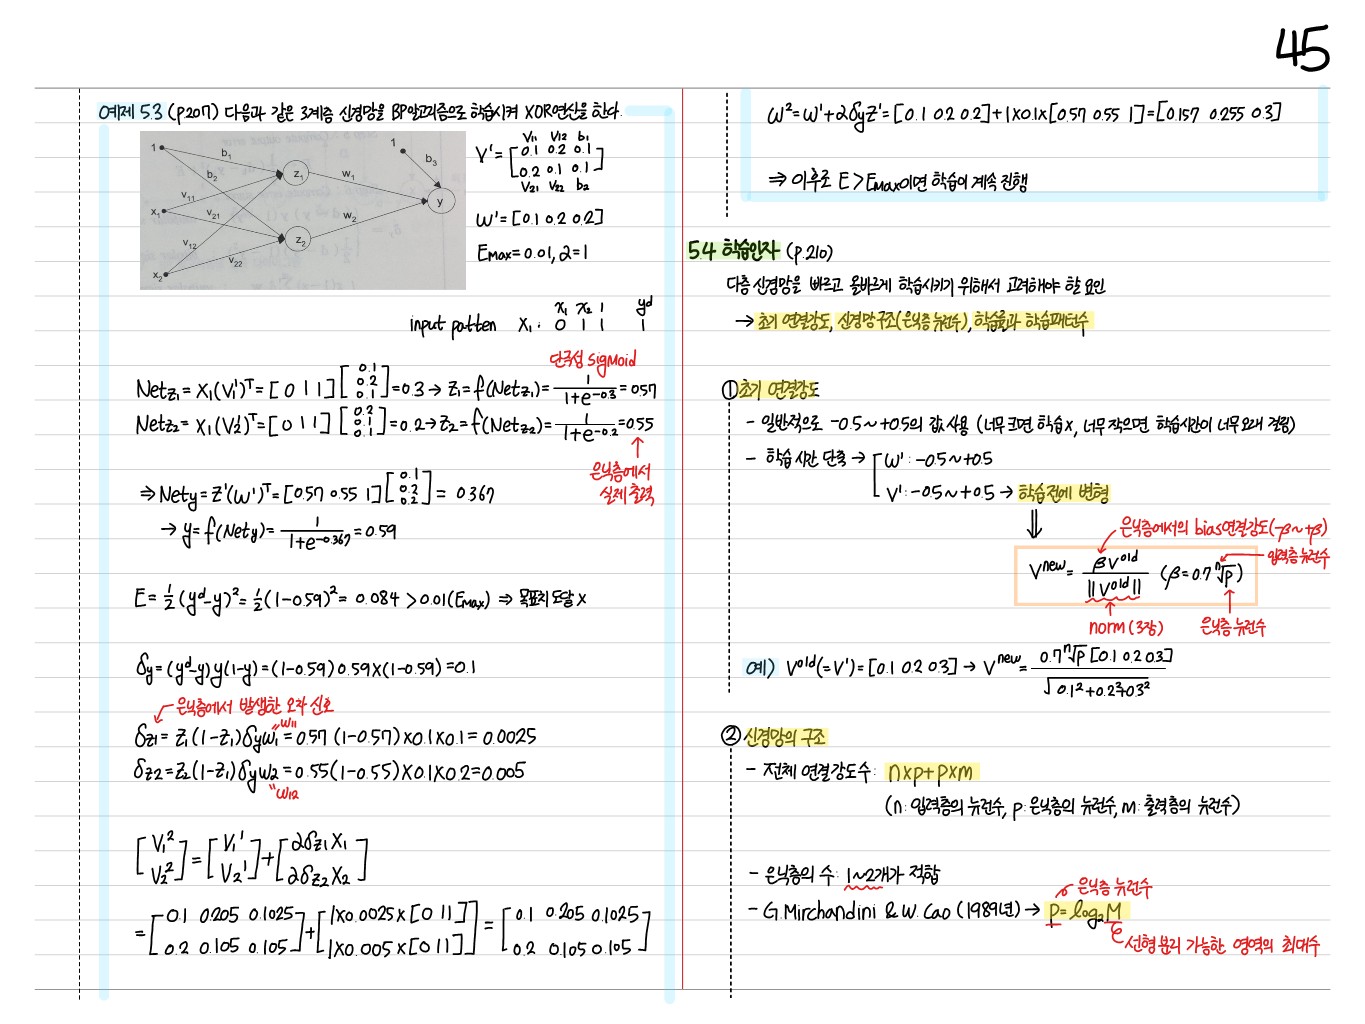 45
예제 5.3 (p.207) 다음과 같은 3계층 신경망을 BP알고리즘으로 학습시켜 XOR연산을 한다.
1 b₁ z₁ 1 b₃
b₂ w₁
v₁₁ y
x₁ v₂₁ w₂
v₁₂ z₂
x₂ v₂₂
V₁₁ V₁₂ b₁
V' = [0.1 0.2 0.1
0.2 0.1 0.1]
V₂₁ V₂₂ b₂
W' = [0.1 0.2 0.2]
Emax = 0.01, α = 1
x₁ x₂ 1 yd
input patten X₁ : 0 1 1 1
단극성 sigmoid
Netz₁ = X₁(V₁')ᵀ = [0 1 1] [0.1 0.2 0.1] = 0.3 → z₁ = f(Netz₁) = 1/(1+e^-0.3) = 0.57
Netz₂ = X₁(V₂')ᵀ = [0 1 1] [0.2 0.1 0.1] = 0.2 → z₂ = f(Netz₂) = 1/(1+e^-0.2) = 0.55
은닉층에서
실제 출력
⇒ Nety = Z'(W')ᵀ = [0.57 0.55 1] [0.1 0.2 0.2] = 0.367
→ y = f(Nety) = 1/(1+e^-0.367) = 0.59
E = ½(yᵈ-y)² = ½(1-0.59)² = 0.084 > 0.01(Emax) ⇒ 목표치 도달 X
δy = (yᵈ-y)y(1-y) = (1-0.59)0.59×(1-0.59) = 0.1
은닉층에서 발생한 오차 신호
"W₁₁
δz₁ = z₁(1-z₁)δyW₁ = 0.57(1-0.57)×0.1×0.1 = 0.0025
δz₂ = z₂(1-z₁)δyW₂ = 0.55(1-0.55)×0.1×0.2 = 0.005
"W₁₂
[V₁² V₂²] = [V₁' V₂'] + [αδz₁X₁ αδz₂X₂]
= [0.1 0.205 0.1025
0.2 0.105 0.105] + [1×0.0025×[0 1 1]
1×0.005×[0 1 1]] = [0.1 0.205 0.1025
0.2 0.105 0.105]
W² = W' + αδyZ' = [0.1 0.2 0.2] + 1×0.1×[0.57 0.55 1] = [0.157 0.255 0.3]
⇒ 이후로 E > Emax이면 학습이 계속 진행
5.4 학습인자 (p.210)
다층 신경망을 빠르고 올바르게 학습시키기 위해서 고려해야 할 요인
→ 초기 연결강도, 신경망구조(은닉층 뉴런수), 학습률과 학습패턴수
① 초기 연결강도
- 일반적으로 -0.5 ~ +0.5의 값 사용 (너무 크면 학습X, 너무 작으면 학습시간이 너무 오래 걸림)
- 학습 시간 단축 → W' : -0.5 ~ +0.5
V' : -0.5 ~ +0.5 → 학습전에 변형
⇓
은닉층에서의 bias연결강도(-β ~ +β)
입력층 뉴런수
Vⁿᵉʷ = βVᵒˡᵈ / ||Vᵒˡᵈ|| (β = 0.7 ⁿ√p)
norm (3장) 은닉층 뉴런수
예) Vᵒˡᵈ(=V') = [0.1 0.2 0.3] → Vⁿᵉʷ = 0.7 ⁿ√p [0.1 0.2 0.3] / √(0.1²+0.2²+0.3²)
② 신경망의 구조
- 전체 연결강도수 : n×p + p×m
(n : 입력층의 뉴런수, p : 은닉층의 뉴런수, m : 출력층의 뉴런수)
- 은닉층의 수 : 1~2개가 적합
은닉층 뉴런수
- G. Mirchandini & W. Cao (1989년) → P = log₂M
선형 분리 가능한 영역의 최대수